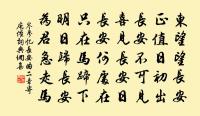 東望望長安
正值日初出
長安不可見
喜見長安日
長安何處在
只在馬蹄下
明日歸長安
為君急走馬
岑參憶長安曲二章寄
龐詩典網集